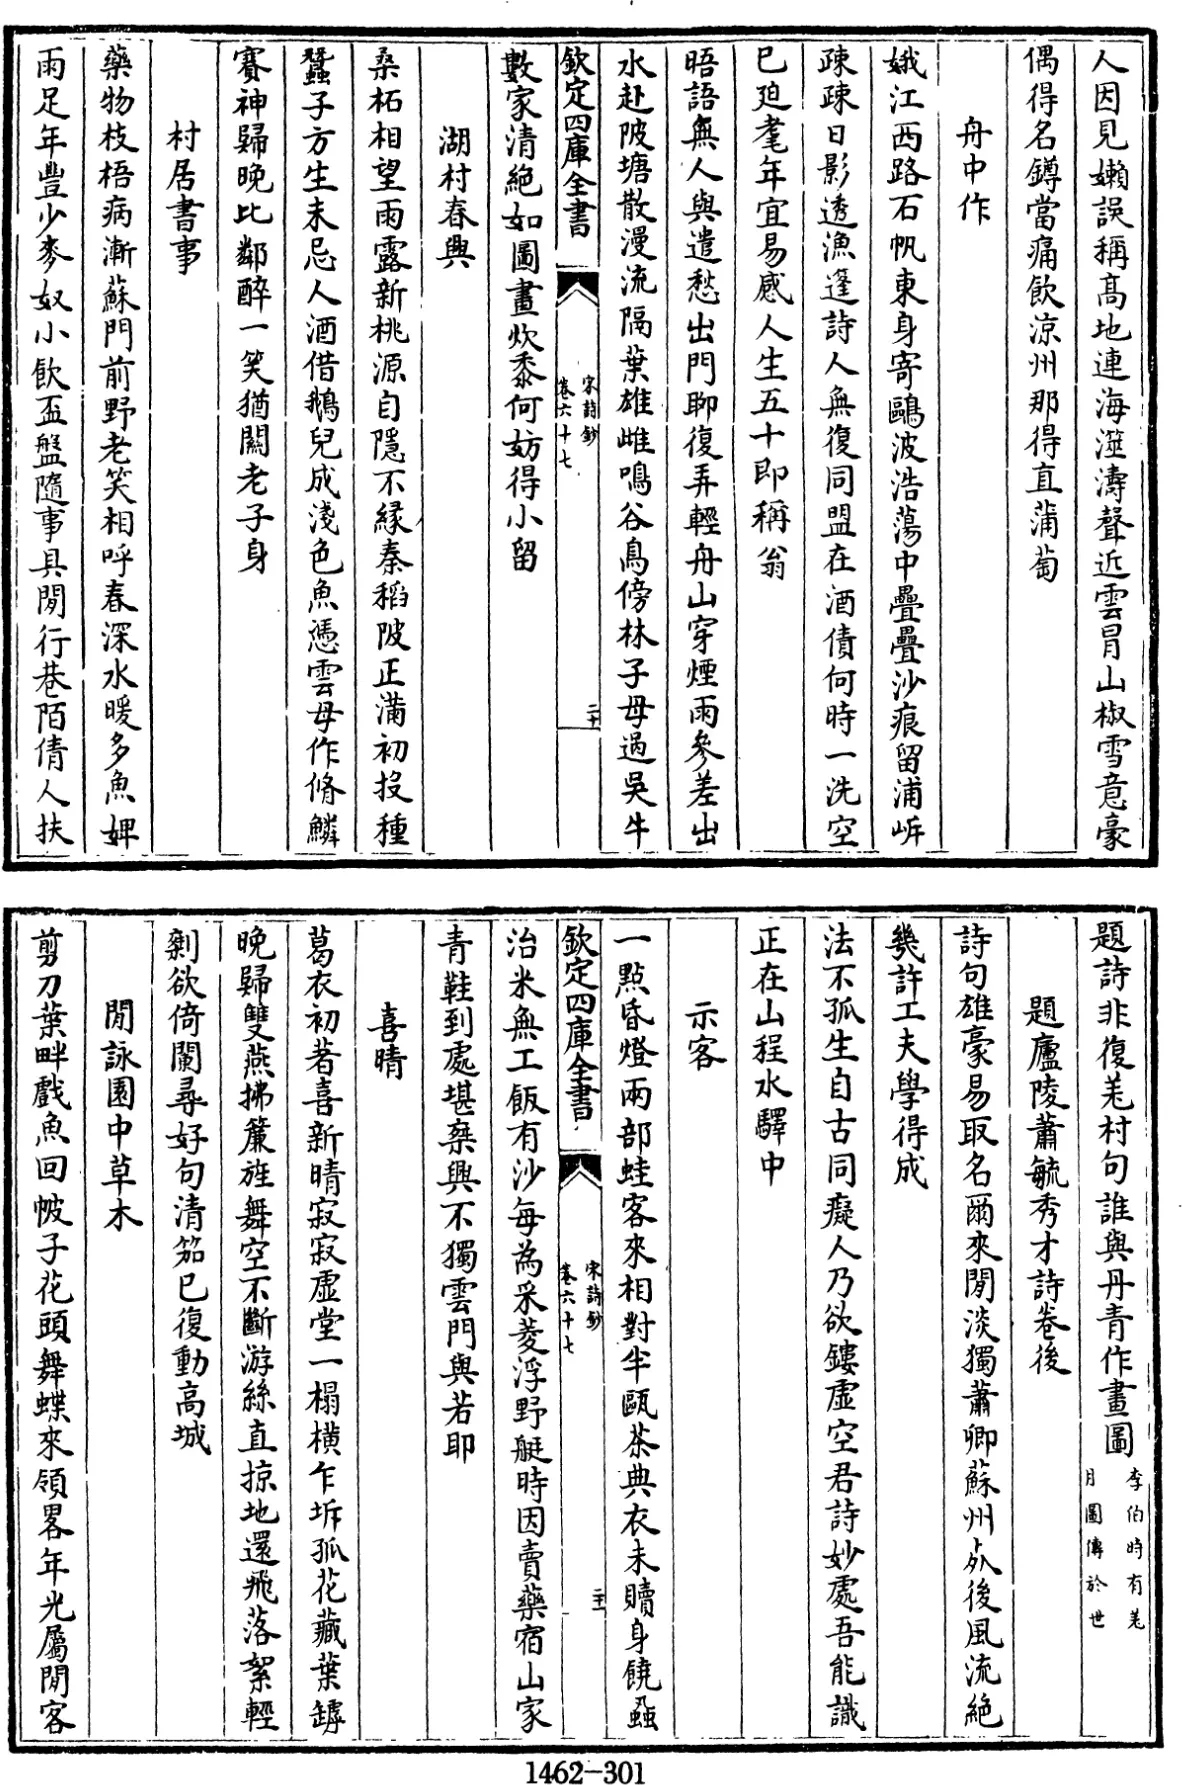 人因見嬾誤稱高地連海澨濤聲近雲冒山椒雪意豪
偶得名鐏當痛飲涼州那得直蒲萄
舟中作
娥江西路石帆東身寄鷗波浩蕩中疊疊沙痕留浦㟁
疎疎日影透漁篷詩人無復同盟在酒債何時一洗空
已迫耄年宜易感人生五十即稱翁
晤語無人與遣愁出門聊復弄輕舟山穿煙雨參差出
水赴陂塘散漫流隔葉雄雌鳴谷鳥傍林子母過吳牛
欽定四庫全書
宋詩鈔
卷六十七
二十
數家清絶如圖畫炊黍何妨得小留
湖村春興
桑柘相望雨露新桃源自隱不緣秦稻陂正滿初投種
蠶子方生未忌人酒借鵝兒成淺色魚憑雲母作脩鱗
賽神歸晚比鄰醉一笑猶關老子身
村居書事
藥物枝梧病漸蘇門前野老笑相呼春深水暖多魚婢
雨足年豐少麥奴小飲盃盤隨事具閒行巷陌倩人扶
題詩非復羌村句誰與丹青作畫圖
李伯時有羌
月圖傳於世
題廬陵蕭毓秀才詩卷後
詩句雄豪易取名爾來閒淡獨蕭卿蘇州死後風流絶
幾許工夫學得成
法不孤生自古同癡人乃欲鏤虛空君詩妙處吾能識
正在山程水驛中
示客
一點昏燈兩部蛙客來相對半甌茶典衣未贖身饒蝨
欽定四庫全書
宋詩鈔
卷六十七
二十一
治米無工飯有沙每為采菱浮野艇時因賣藥宿山家
青鞋到處堪乘興不獨雲門與若耶
喜晴
葛衣初著喜新晴寂寂虛堂一榻橫乍坼孤花藏葉罅
晚歸雙燕拂簾旌舞空不斷游絲直掠地還飛落絮輕
剩欲倚闌尋好句清笳已復動高城
閒詠園中草木
剪刀葉畔戲魚回帔子花頭舞蝶來領畧年光屬閒客
1462-301